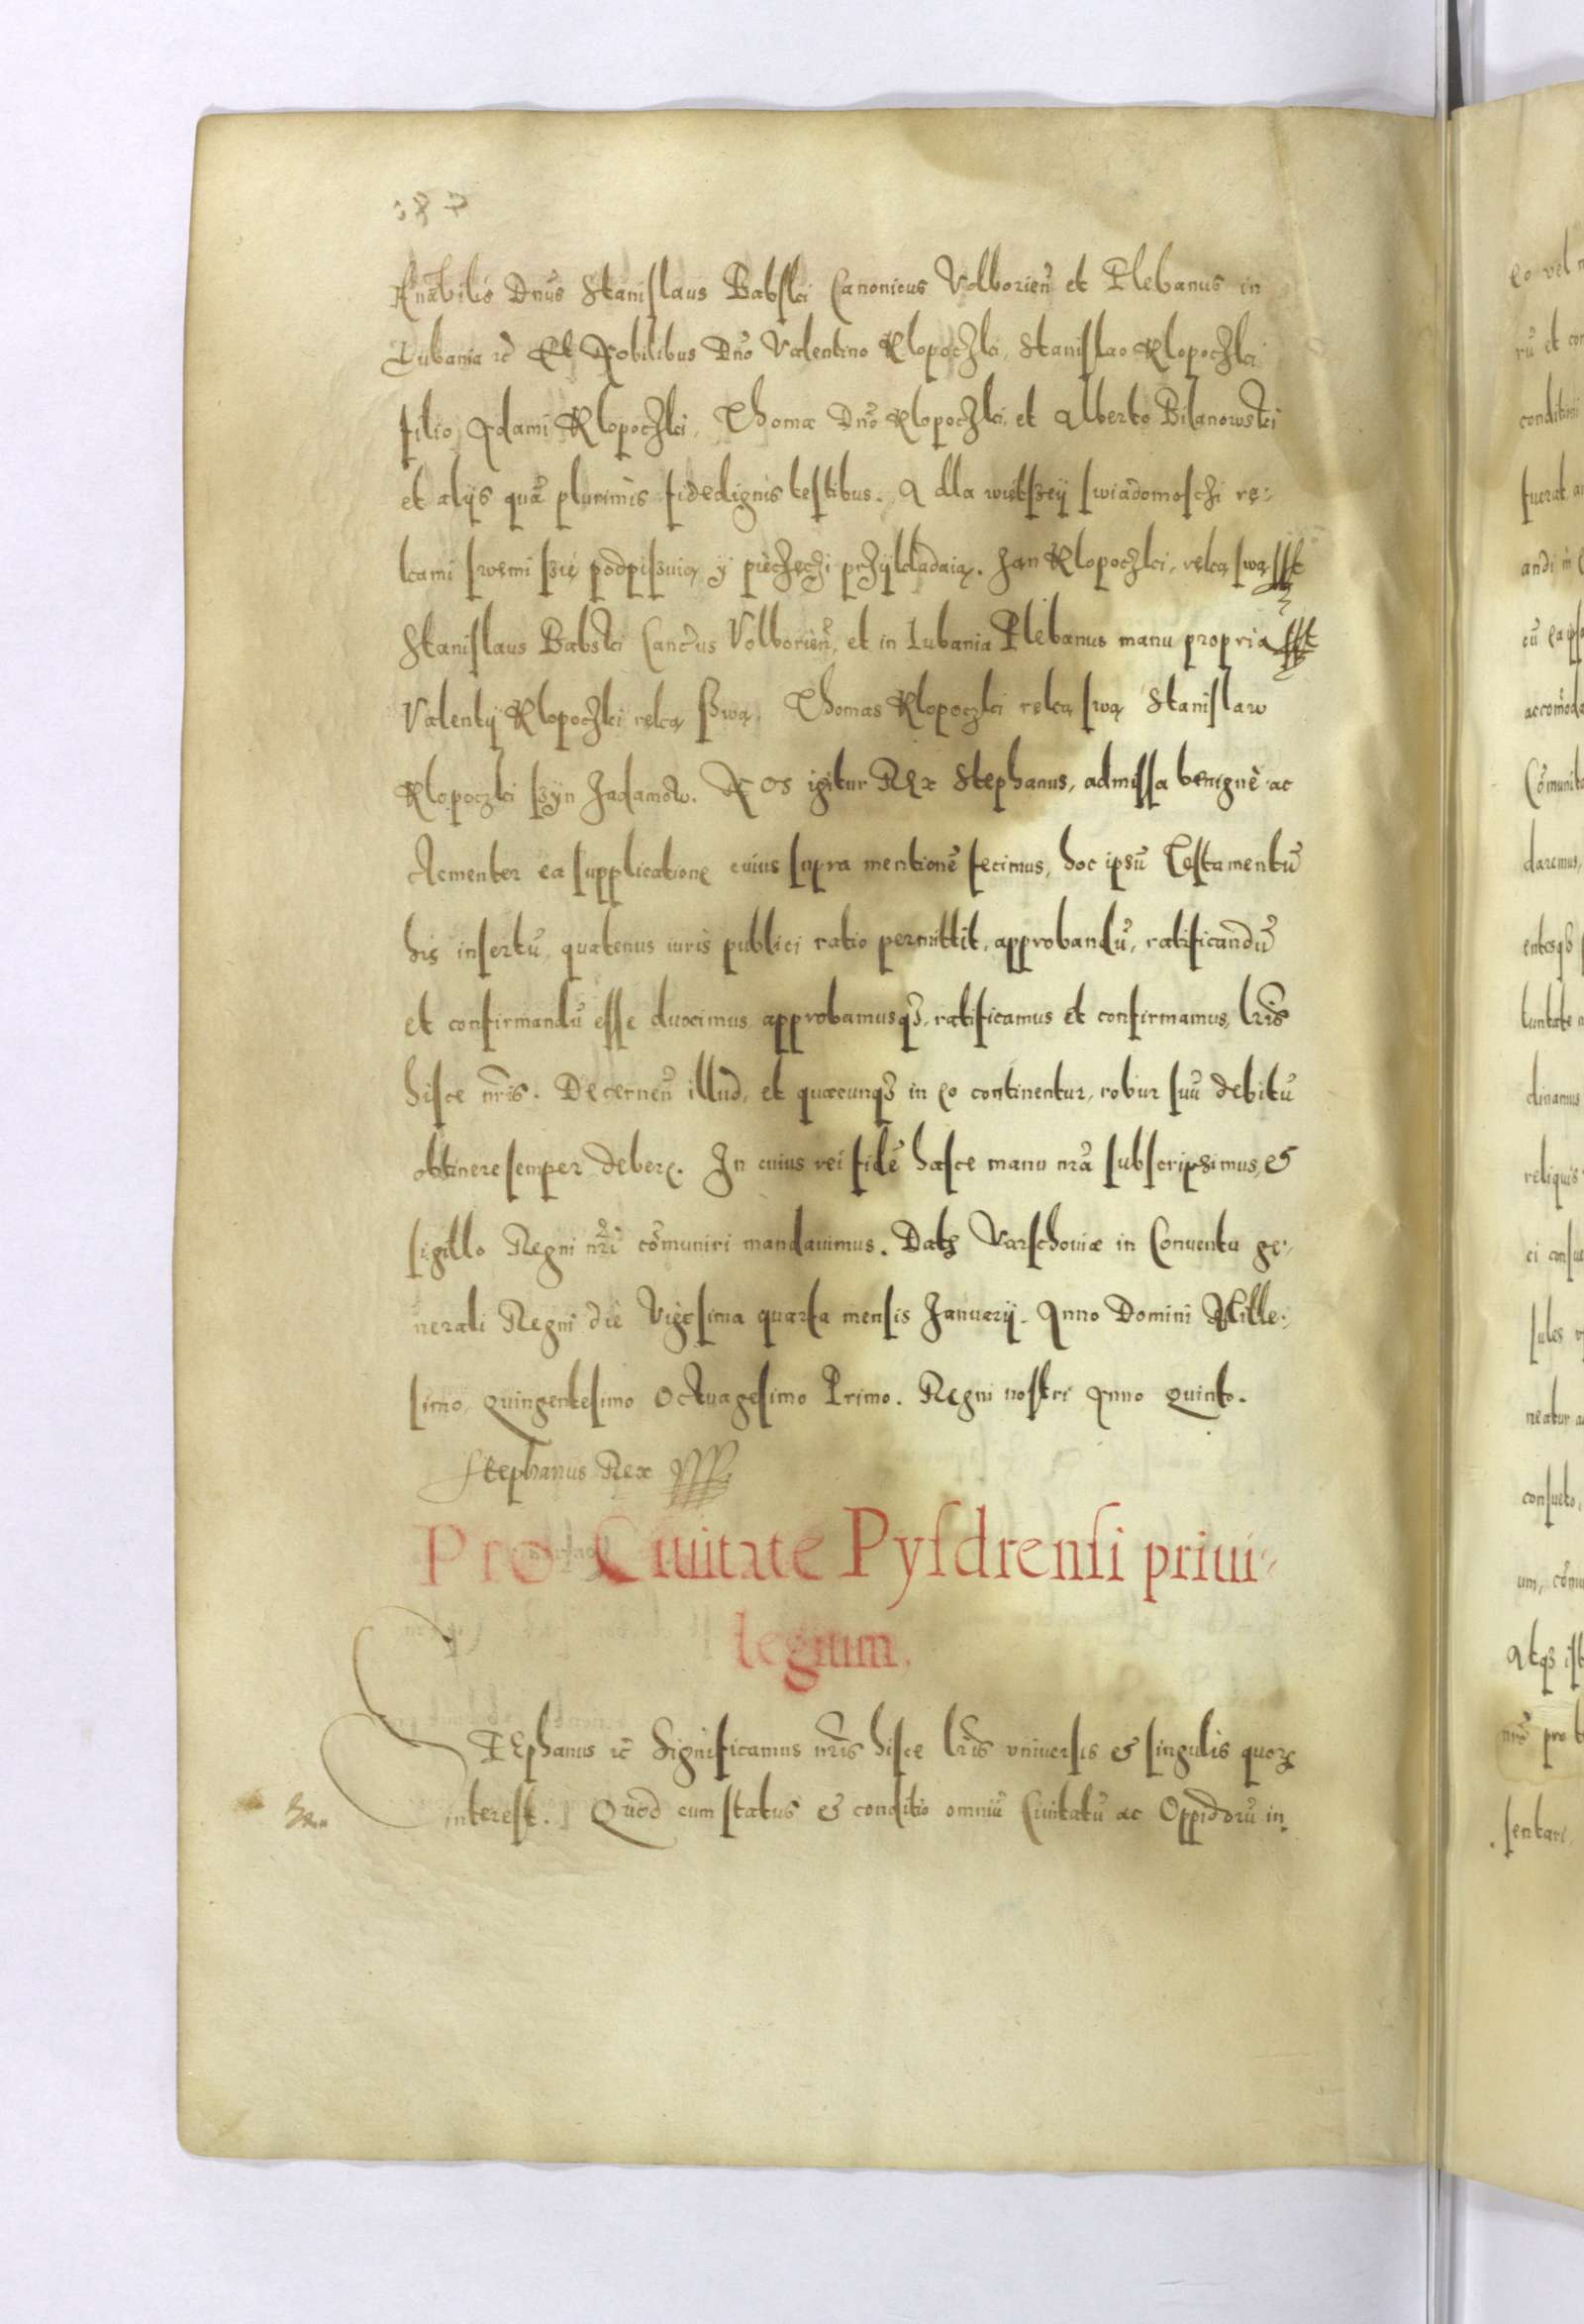 187
Rnabilis Dnus Stanislaus Babski Canonicus Volborien et Plebanus in
Lubania rc Et Nobilibus Dno Valentino Klopoczki, Stanislao Klopoczki
filio Adami Klopoczki, Thoma Dno Klopoczki, et Alberto Bilanowski
et alijs quā plurimis fidedignis testibus. A dla wietszey swiadomoschi rę:
kami swemi szię podpiszuią y pieczęczi przykladaią. Jan Klopoczki, ręką swą sst
Stanislaus Babski Cancus Volborien, et in Lubania Plebanus manu propria sst
Valenty Klopoczki ręką swą, Thomas Klopoczki ręką swą Stanislaw
Klopoczki szyn Jadamow. Nos igitur Rex Stephanus, admissa benignè ac
clementer ea supplicatione cuius supra mentionē fecimus, hoc ipsū Testamentū
his insertū, quatenus iuris publici ratio permittit, approbandū, ratificandū
et confirmandū esse duximus, approbamusqȝ, ratificamus et confirmamus, lris
hisce nris. Decernen illud, et quæcunqȝ in eo continentur, robur suū debitū
obtinere semper debere. In cuius rei fidē hasce manu nra subscripsimus, &
sigillo Regni nri cōmuniri mandauimus. Datȝ Varschouiæ in Conuentu ge:
nerali Regni die Vigesima quarta mensis Januarij. Anno Domini Mille:
simo, Quingentesimo Octuagesimo Primo. Regni nostri Anno Quinto.
Stephanus Rex
Pro Ciuitate Pysdrensi priui-
legium.
STEphanus rc Significamus nris hisce lris vniuersis & singulis quorȝ
interest. Quod cum status & conditio omniū Ciuitatū ac Oppidorū in